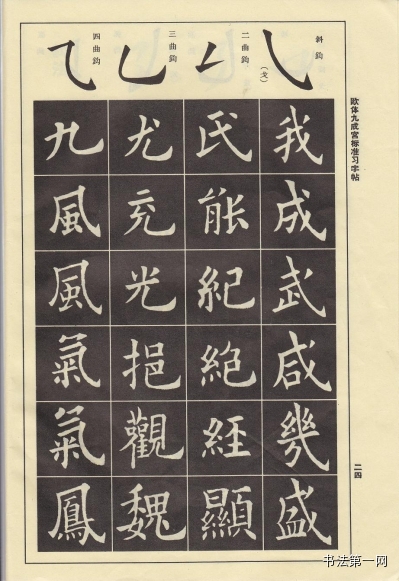 欧体九成宫标准习字帖
二四
斜鈎
(戈)
我成武咸幾盛
二曲鈎
氏能紀絶經顯
三曲鈎
尤充光挹觀魏
四曲鈎
九風風氣氣鳳
书法第一网